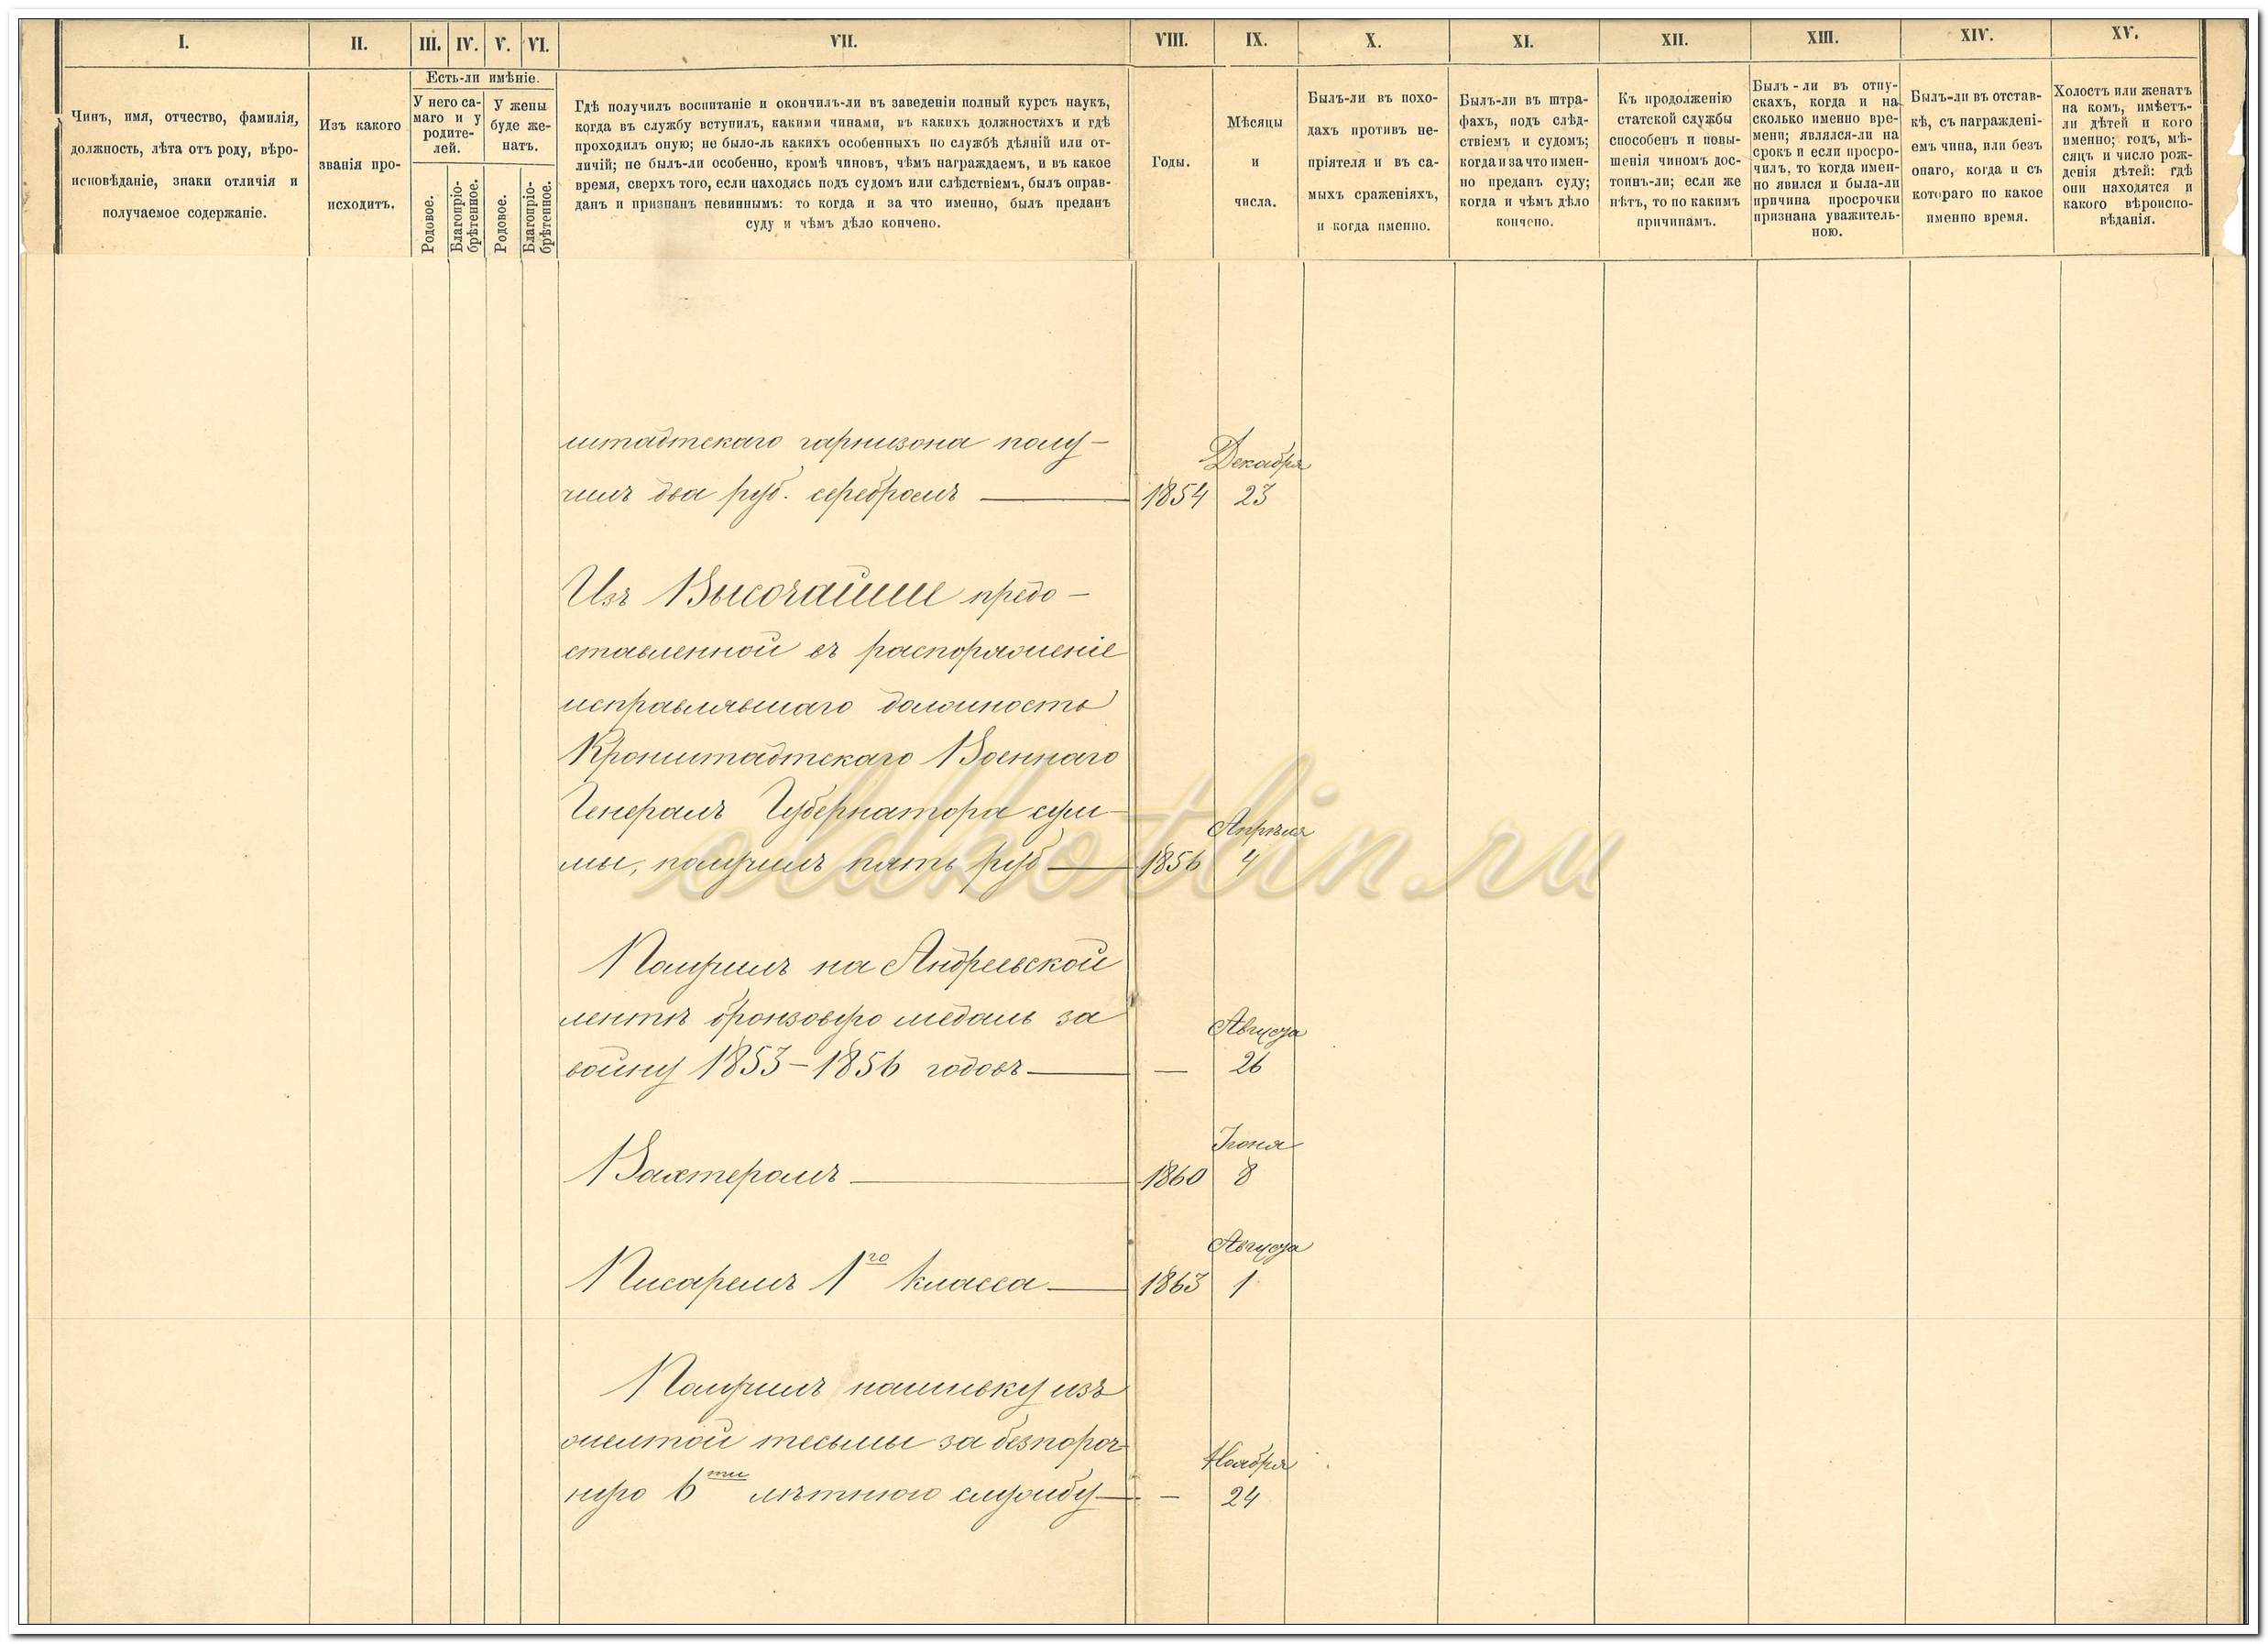 I. II. III. IV. V. VI. VII. VIII. IX. X. XI. XII. XIII. XIV. XV.
Чинъ, имя, отчество, фамилія,
должность, лѣта отъ роду, вѣро-
исповѣданіе, знаки отличія и
получаемое содержаніе.
Изъ какого
званія про-
исходитъ.
Есть-ли имѣніе.
У него са-
маго и у
родите-
лей.
У жены
буде же-
натъ.
Родовое.
Благопріо-
брѣтенное.
Родовое.
Благопріо-
брѣтенное.
Гдѣ получилъ воспитаніе и окончилъ-ли въ заведеніи полный курсъ наукъ,
когда въ службу вступилъ, какими чинами, въ какихъ должностяхъ и гдѣ
проходилъ оную; не было-ль какихъ особенныхъ по службѣ дѣяній или от-
личій; не былъ-ли особенно, кромѣ чиновъ, чѣмъ награждаемъ, и въ какое
время, сверхъ того, если находясь подъ судомъ или слѣдствіемъ, былъ оправ-
данъ и признанъ невиннымъ: то когда и за что именно, былъ преданъ
суду и чѣмъ дѣло кончено.
Годы.
Мѣсяцы
и
числа.
Былъ-ли въ похо-
дахъ противъ не-
пріятеля и въ са-
мыхъ сраженіяхъ,
и когда именно.
Былъ-ли въ штра-
фахъ, подъ слѣд-
ствіемъ и судомъ;
когда и за что имен-
но преданъ суду;
когда и чѣмъ дѣло
кончено.
Къ продолженію
статской службы
способенъ и повы-
шенія чиномъ дос-
тоинъ-ли; если же
нѣтъ, то по какимъ
причинамъ.
Былъ-ли въ отпу-
скахъ, когда и на
сколько именно вре-
мени; являлся-ли на
срокъ и если просро-
чилъ, то когда имен-
но явился и была-ли
причина просрочки
признана уважитель-
ною.
Былъ-ли въ отстав-
кѣ, съ награждені-
емъ чина, или безъ
онаго, когда и съ
котораго по какое
именно время.
Холостъ или женатъ
на комъ, имѣетъ-
ли дѣтей и кого
именно; годъ, мѣ-
сяцъ и число рож-
денія дѣтей: гдѣ
они находятся и
какого вѣроиспо-
вѣданія.
штадтскаго гарнизона полу-
Декабря
чилъ два руб. серебромъ 1854 23
Изъ Высочайше предо-
ставленной въ распоряженіе
исправлявшаго должность
Кронштадтскаго Военнаго
Генералъ Губернатора сум-
Апрѣля
мы, получилъ пять руб 1856 4
oldkotlin.ru
Получилъ на Андреевской
лентѣ бронзовую медаль за
Августа
войну 1853–1856 годовъ — 26
Іюня
Вахтеромъ 1860 8
Августа
Писаремъ 1го класса 1863 1
Получилъ нашивку изъ
желтой тесьмы за безпороч-
Ноября
ную 6ти лѣтнюю службу — 24